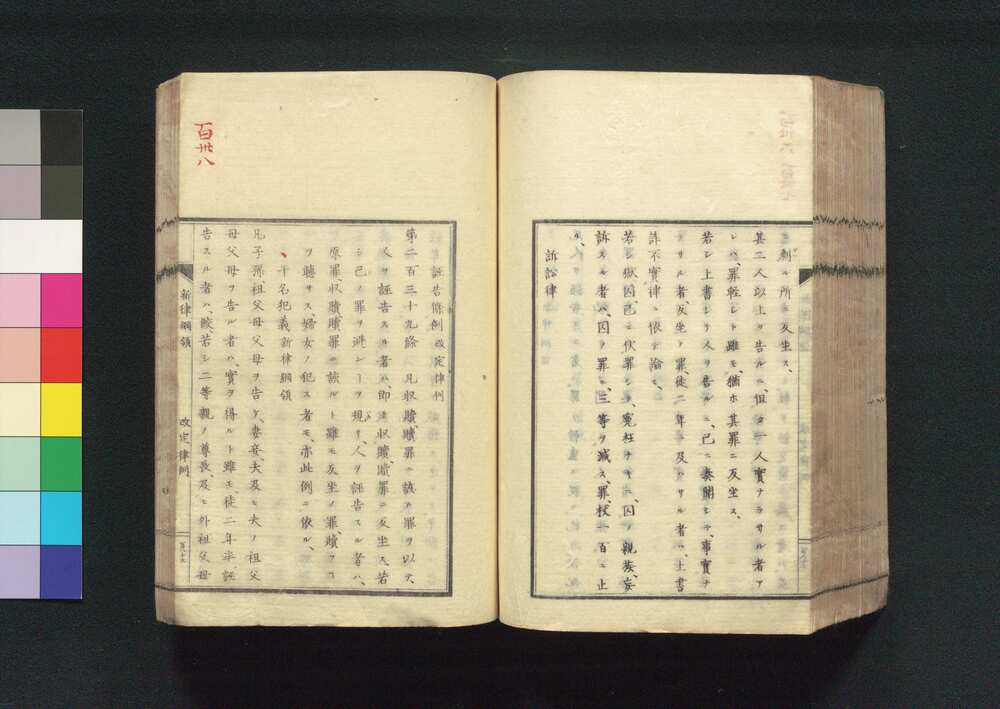 剰ル所ニ反坐ス、
其二人以上ヲ告ルニ、但タ一人實ナラサル者ア
レハ、罪輕シト雖モ、猶ホ其罪ニ反坐ス、
若シ上書シテ人ヲ告ルニ、已ニ奏聞シテ、事實ナ
ラサル者、反坐ノ罪、徒二年ニ及ハサル者ハ、上書
詐不實律ニ依テ論ス、
若シ獄囚、已ニ伏罪シ、寃枉ナキニ、囚ノ親族、妄ニ
訴スル者ハ、囚ノ罪ニ、三等ヲ減ス、罪、杖一百ニ止
ル、
訴訟律
百卅八
誣告條例改定律例
第二百三十九條 凡収贖贖罪ニ該ル罪ヲ以テ、
人ヲ誣告スル者ハ、即チ収贖贖罪ニ反坐ス、若
シ己ノ罪ヲ避ンヿヲ規リ、人ヲ誣告スル者ハ、
原罪収贖贖罪ニ該ルト雖モ反坐ノ罪、贖フヿ
ヲ聽サス、婦女ノ犯ス者モ、亦此例ニ依ル、
干名犯義新律綱領
凡子孫祖父母父母ヲ告ケ、妻妾、夫及ヒ夫ノ祖父
母父母ヲ告ル者ハ、實ヲ得ルト雖モ、徒二年半、誣
告スル者ハ、絞、若シ二等親ノ尊長、及ヒ外祖父母
新律綱領 改定律例